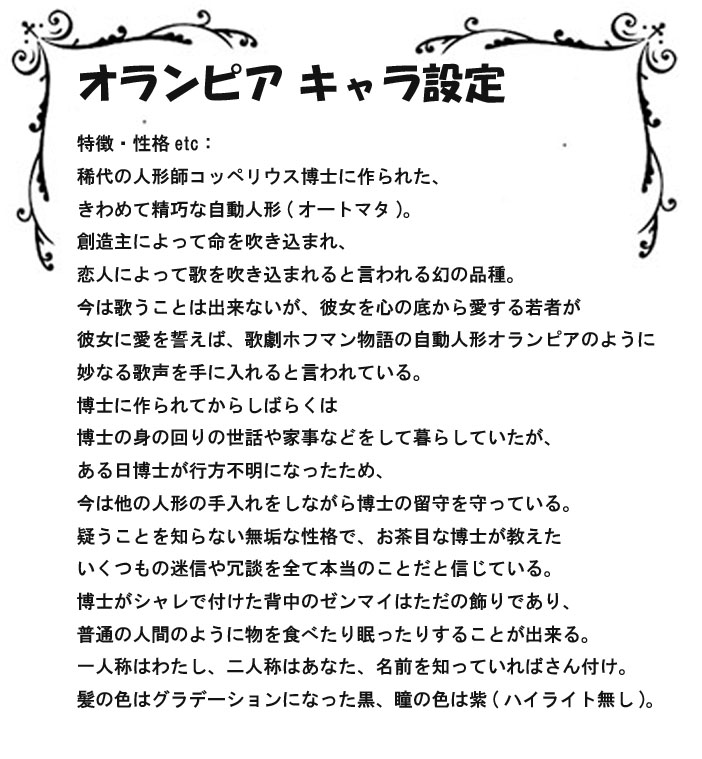 オランピア キャラ設定
特徴・性格 etc：
稀代の人形師コッペリウス博士に作られた、
きわめて精巧な自動人形 ( オートマタ )。
創造主によって命を吹き込まれ、
恋人によって歌を吹き込まれると言われる幻の品種。
今は歌うことは出来ないが、彼女を心の底から愛する若者が
彼女に愛を誓えば、歌劇ホフマン物語の自動人形オランピアのように
妙なる歌声を手に入れると言われている。
博士に作られてからしばらくは
博士の身の回りの世話や家事などをして暮らしていたが、
ある日博士が行方不明になったため、
今は他の人形の手入れをしながら博士の留守を守っている。
疑うことを知らない無垢な性格で、お茶目な博士が教えた
いくつもの迷信や冗談を全て本当のことだと信じている。
博士がシャレで付けた背中のゼンマイはただの飾りであり、
普通の人間のように物を食べたり眠ったりすることが出来る。
一人称はわたし、二人称はあなた、名前を知っていればさん付け。
髪の色はグラデーションになった黒、瞳の色は紫 ( ハイライト無し )。